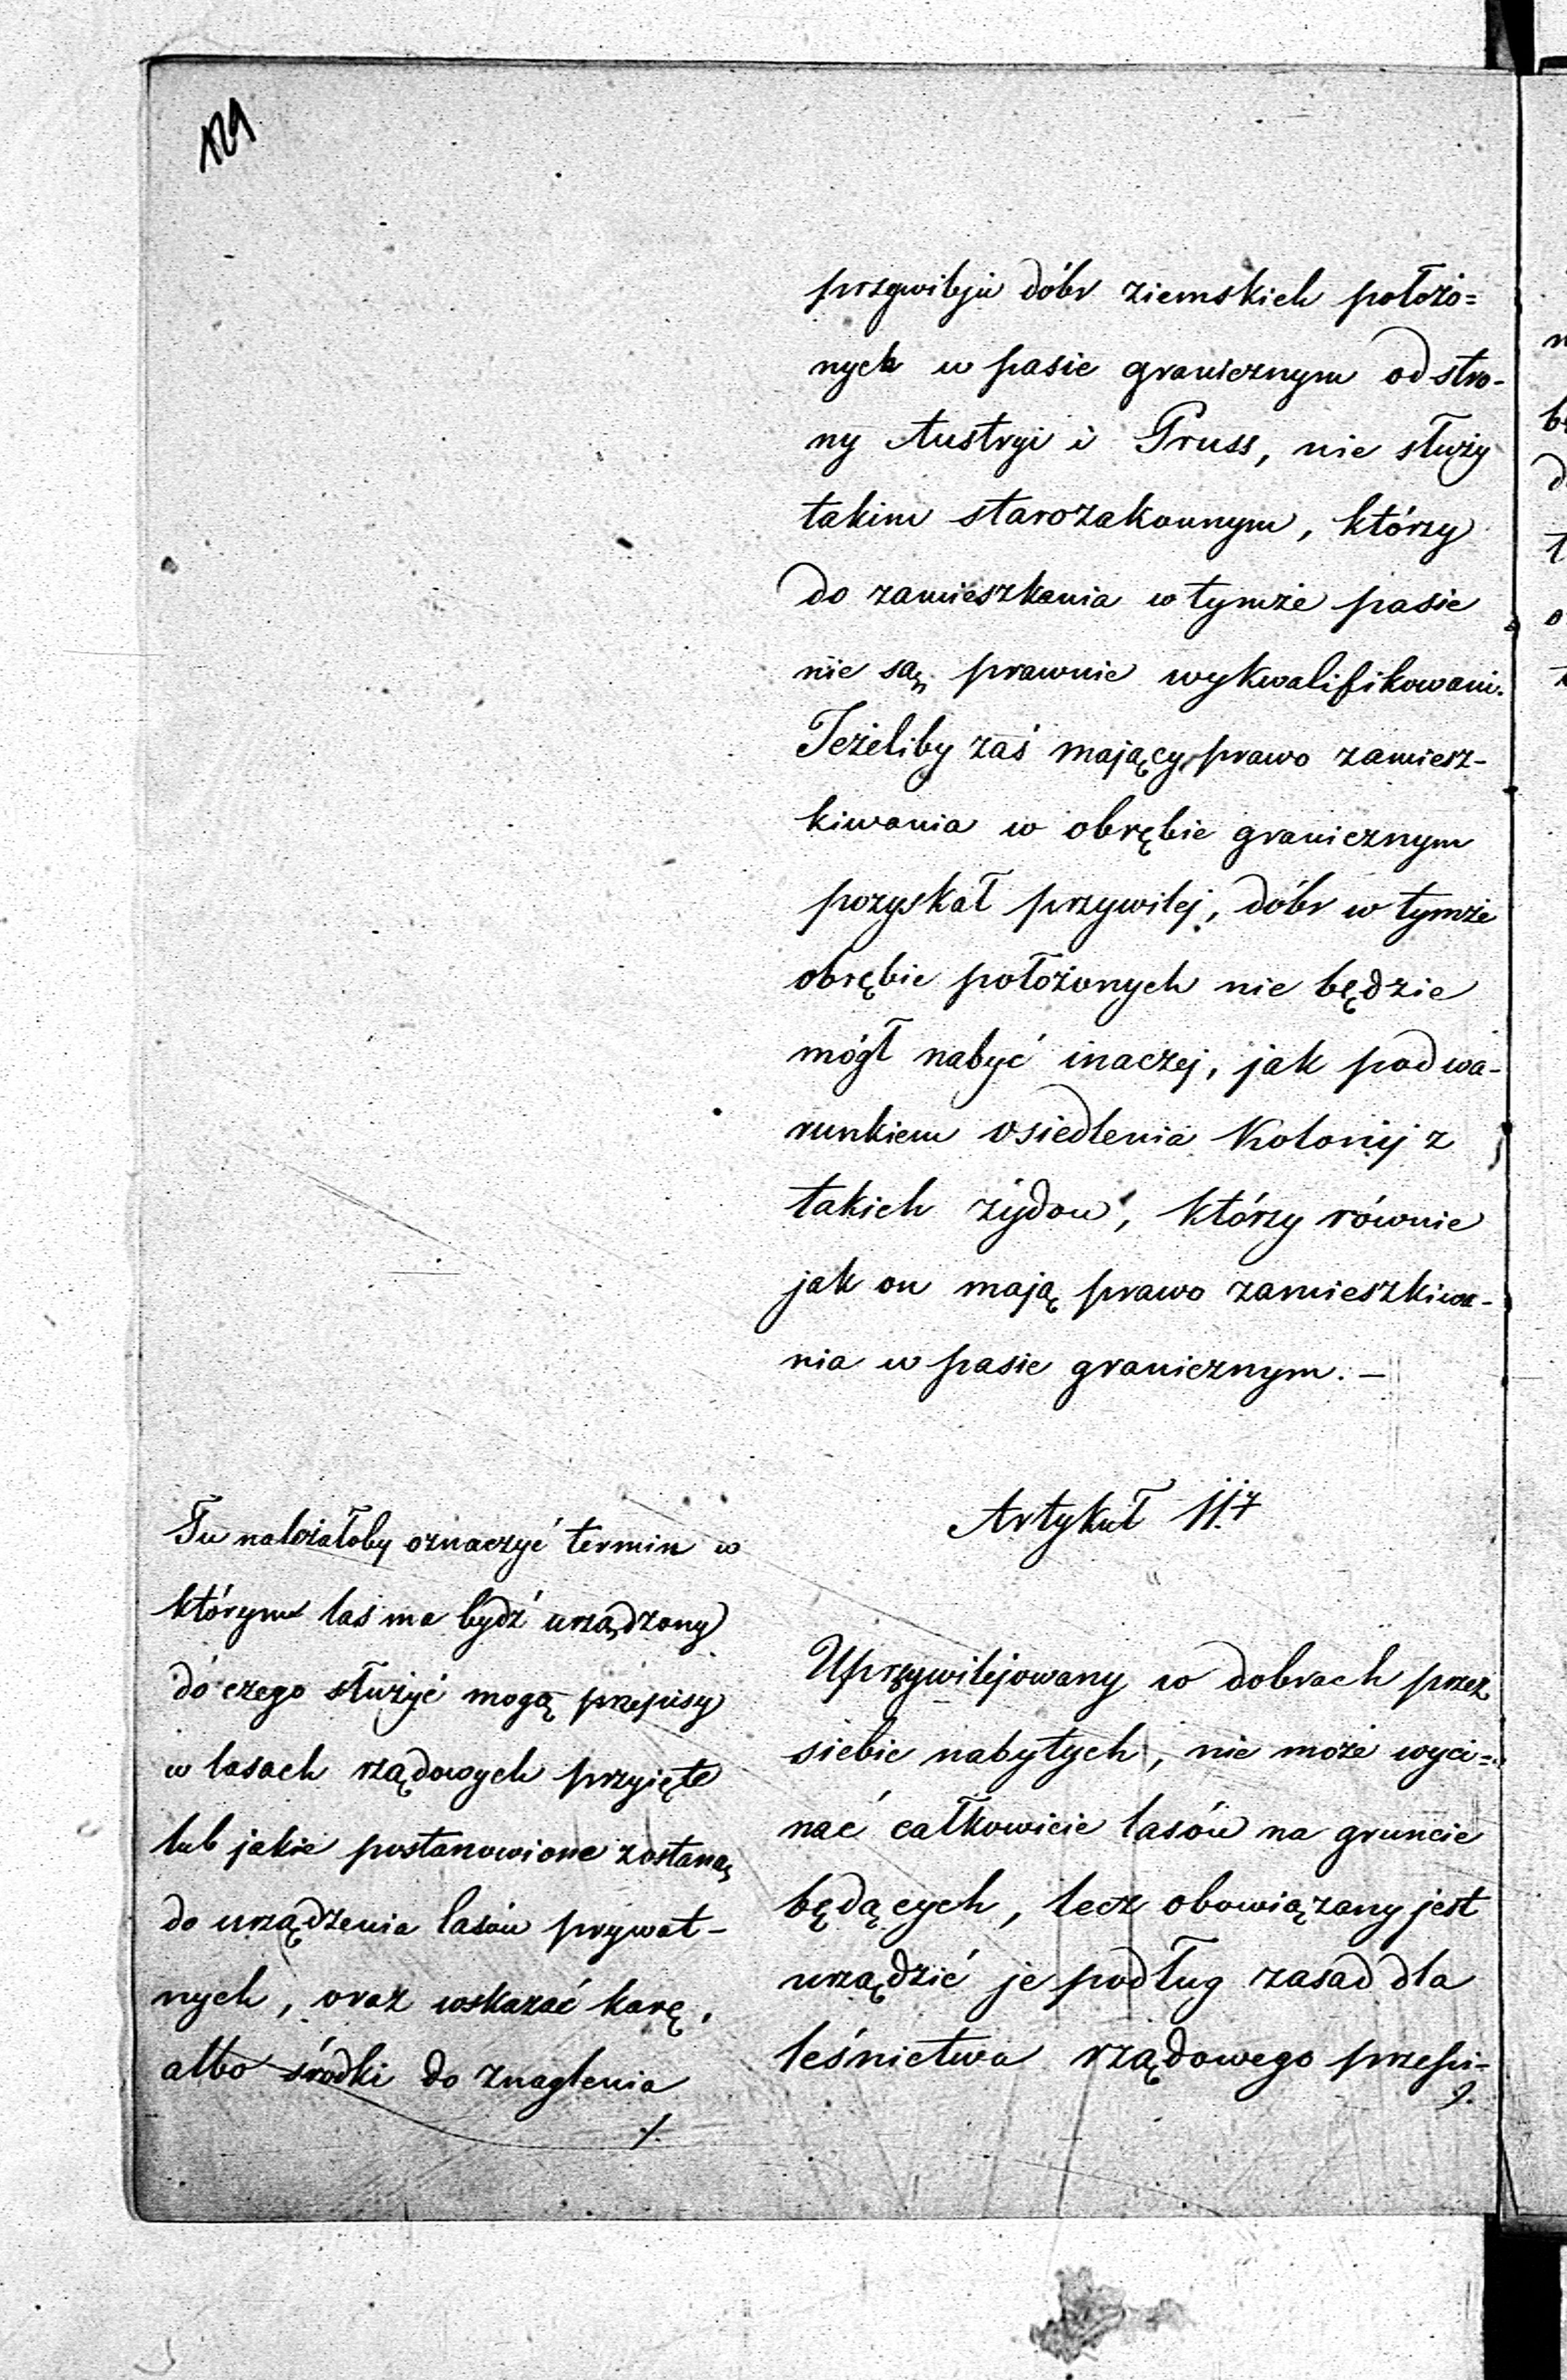 129
przywileju dóbr ziemskich położo=
nych w pasie granicznym od stro-
ny Austryi i Pruss, nie służy
takim starozakonnym, którzy
do zamieszkania w tymże pasie
nie są prawnie wykwalifikowani.
Jeżeliby zaś mający prawo zamiesz-
kiwania w obrębie granicznym
pozyskał przywilej, dóbr w tymże
obrębie położonych nie będzie
mógł nabyć inaczej, jak pod wa-
runkiem osiedlenia Kolonij z
takich żydów, którzy równie
jak on mają prawo zamieszkiwa-
nia w pasie granicznym. —
Artykuł 11.
Uprzywilejowany w dobrach przez
siebie nabytych, nie może wyci=
nać całkowicie lasów na gruncie
będących, lecz obowiązany jest
urządzić je podług zasad dla
leśnictwa rządowego przepi-
Tu należałoby oznaczyć termin w
którym las ma bydź urządzony
do czego służyć mogą przepisy
w lasach rządowych przyięte
lub jakie postanowione zostaną
do urządzenia lasów prywat-
nych, oraz wskazać karę,
albo środki do znaglenia
./.